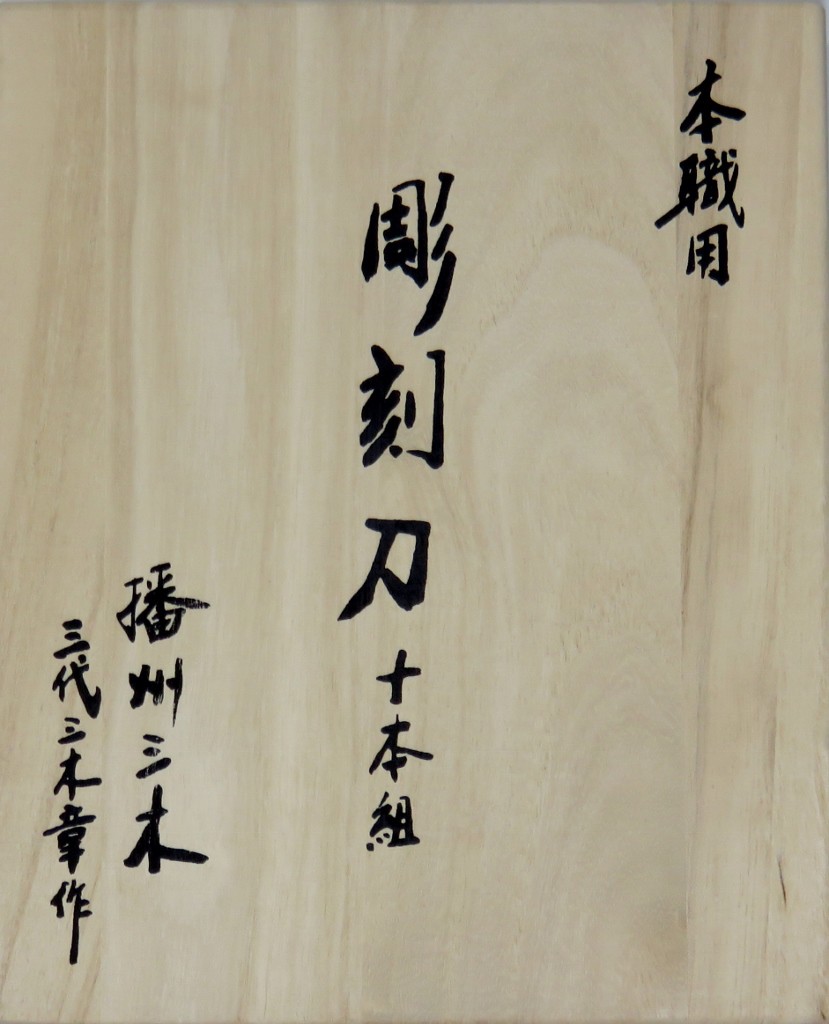 本職用
彫刻刀十本組
播州三木
三代三木章作